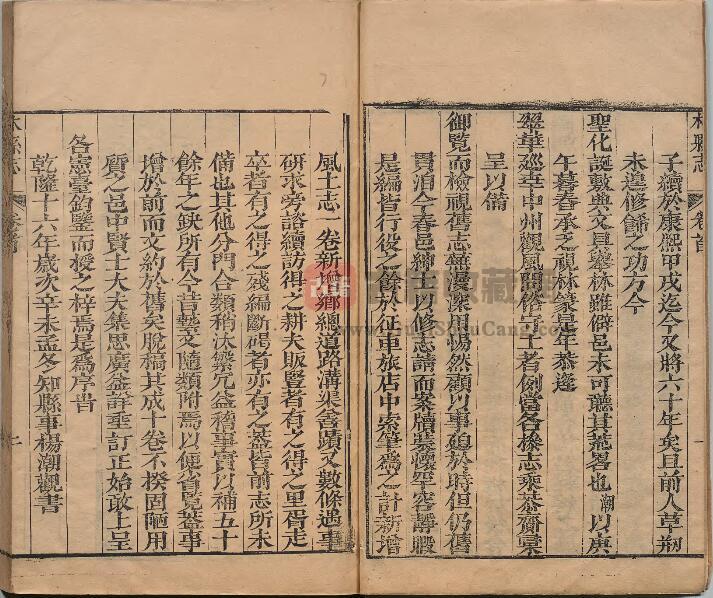 子續於康熙甲戌迄今又將六十年矣且前人草剏
未遑修餙之功方今
聖化誕敷典文具舉林雖僻邑未可聽其荒畧也潮以庚
午暮春承乏視林篆是年恭逢
翠華廵幸中州觀風問俗守土者例當各條志乘恭齎彙
呈以備
御覧而檢視舊志蕪漫深用惕然顧以事廹於時但仍舊
貫洎今春邑紳以修志請而案牘裝懷罕容靜暇
是編皆行役之餘於征車旅店中索筆爲之計新增
林縣志
卷首
一
風土志一卷新增鄉總道路溝渠善蹟又數條遇事
研求旁諮續訪得之耕夫販豎者有之得之里胥走
卒者有之得之殘編斷碣者亦有之葢皆前志所未
備也其他分門合類稍汰繁冗益稽事實以補五十
餘年之缺所有今昔藝文隨類附焉以便省覧葢事
增於前而文約於舊矣脫稿其成十卷不揆固陋用
質之邑中賢士大夫集思廣益詳重訂正始敢上呈
各憲臺鈞鑒而授之梓焉是爲序旹
乾隆十六年歲次辛未孟冬知縣事楊潮觀書
林縣志
卷首